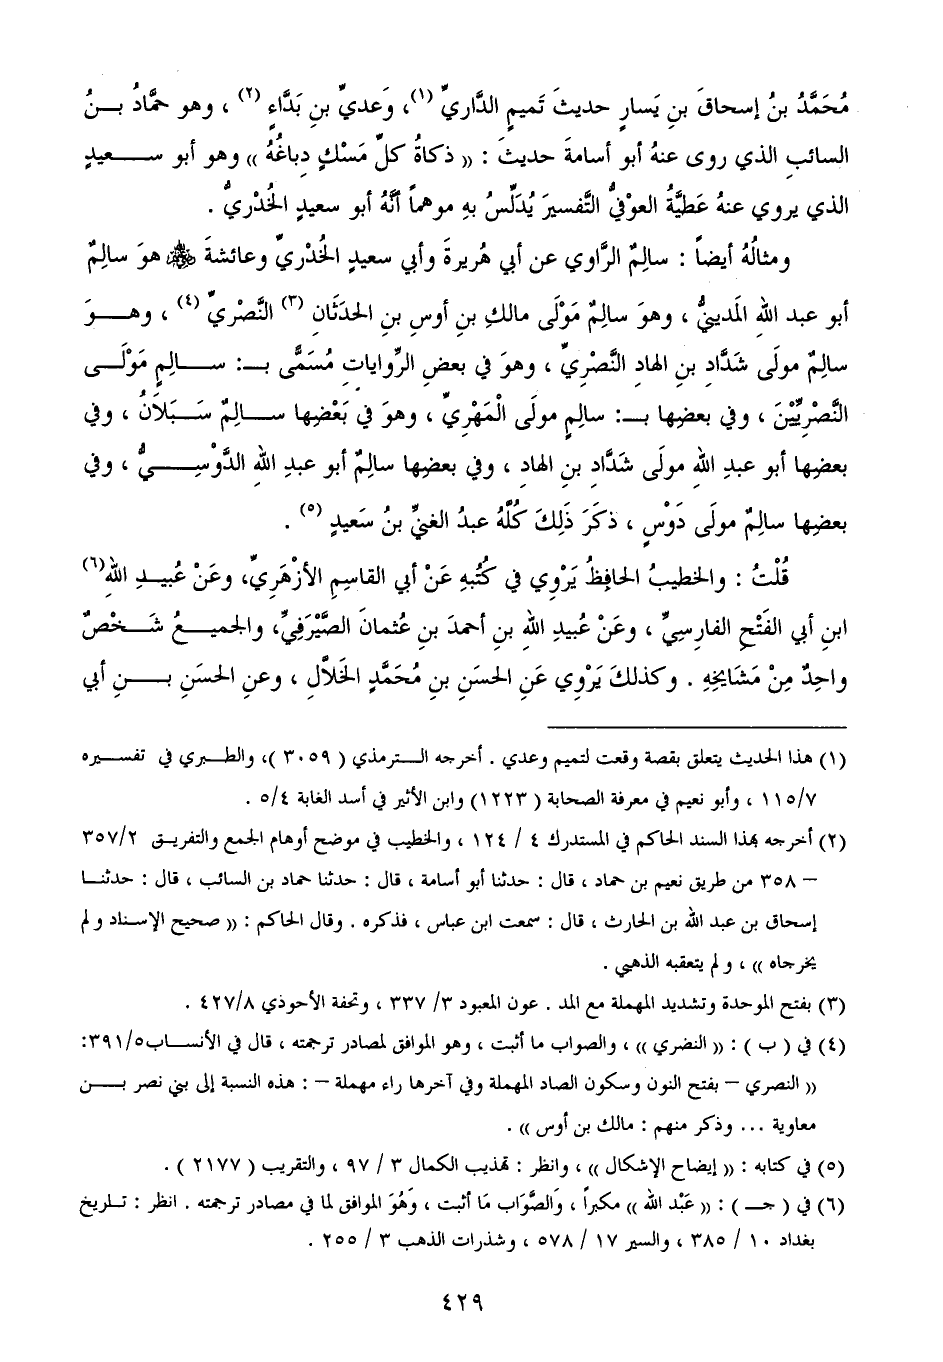 مُحَمَّدُ بنُ إسحاقَ بنِ يَسارٍ حديثَ تَميمٍ الدَّاريِّ (١)، وَعَديِّ بنِ بَدَّاءٍ (٢) ، وهو حمَّادُ بـنُ
السائبِ الذي روى عنهُ أبو أسامةَ حديثَ : (( ذكاةُ كلِّ مَسْكٍ دِباغُهُ )) وهو أبو سـعيدٍ
الذي يروي عنهُ عَطيَّةُ العوفيُّ التَّفسيرَ يُدَلِّسُ بهِ موهماً أنَّهُ أبو سعيدٍ الخُدْريُّ .
ومثالُهُ أيضاً : سالِمٌ الرَّاوي عن أبي هُريرةَ وأبي سعيدٍ الخُدْريِّ وعائشةَ ﷺ هوَ سالِمٌ
أبو عبد اللهِ المَدينيُّ ، وهوَ سالِمٌ مَوْلَى مالكِ بنِ أوسِ بنِ الحَدَثَانِ (٣) النَّصْريِّ (٤) ، وهـوَ
سالِمٌ مولَى شَدَّادِ بنِ الهادِ النَّصْريِّ ، وهوَ في بعضِ الرِّواياتِ مُسَمَّى بـ: سـالِمٍ مَوْلَـى
النَّصْرِيِّيْنَ ، وفي بعضِها بـ: سالِمٍ مولَى الْمَهْرِيِّ ، وهوَ في بَعْضِها سـالِمٌ سَـبَلاَنُ ، وفي
بعضِها أبو عبدِ اللهِ مولَى شَدَّادِ بنِ الهادِ ، وفي بعضِها سالِمٌ أبو عبدِ اللهِ الدَّوْسِـيُّ ، وفي
بعضِها سالِمٌ مولَى دَوْسٍ ، ذكَرَ ذَلِكَ كُلَّهُ عبدُ الغنيِّ بنُ سَعيدٍ (٥) .
قُلْتُ : والخطيبُ الحافِظُ يَرْوِي في كُتُبِهِ عَنْ أبي القاسِمِ الأزْهَريِّ، وعَنْ عُبيـدِ اللهِ(٦)
ابنِ أبي الفَتْحِ الفارسِيِّ ، وعَنْ عُبيدِ اللهِ بنِ أحمدَ بنِ عُثمانَ الصَّيْرَفِيِّ، والجميـعُ شَـخْصٌ
واحِدٌ مِنْ مَشَايخِهِ . وكذلكَ يَرْوِي عَنِ الحسَنِ بنِ مُحَمَّدٍ الخَلَّالِ ، وعنِ الحسَنِ بـنِ أبي
(١) هذا الحديث يتعلق بقصة وقعت لتميم وعدي . أخرجه الـترمذي ( ٣٠٥٩ )، والطـبري في تفسـيره
٧/١١٥ ، وأبو نعيم في معرفة الصحابة ( ١٢٢٣) وابن الأثير في أسد الغابة ٤/ ٥ .
(٢) أخرجه بهذا السند الحاكم في المستدرك ٤ / ١٢٤ ، والخطيب في موضح أوهام الجمع والتفريـق ٢/ ٣٥٧
– ٣٥٨ من طريق نعيم بن حماد ، قال : حدثنا أبو أسامة ، قال : حدثنا حماد بن السائب ، قال : حدثنـا
إسحاق بن عبد الله بن الحارث ، قال : سمعت ابن عباس ، فذكره . وقال الحاكم : (( صحيح الإسناد ولم
يخرجاه )) ، ولم يتعقبه الذهبي .
(٣) بفتح الموحدة وتشديد المهملة مع المد . عون المعبود ٣/ ٣٣٧ ، وتحفة الأحوذي ٨/ ٤٢٧ .
(٤) في ( ب ) : (( النضري )) ، والصواب ما أثبت ، وهو الموافق لمصادر ترجمته ، قال في الأنسـاب٥/ ٣٩١:
(( النصري – بفتح النون وسكون الصاد المهملة وفي آخرها راء مهملة – : هذه النسبة إلى بني نصر بـن
معاوية ... وذكر منهم : مالك بن أوس )) .
(٥) في كتابه : (( إيضاح الإشكال )) ، وانظر : تهذيب الكمال ٣ / ٩٧ ، والتقريب ( ٢١٧٧ ) .
(٦) في ( جـ ) : (( عَبْد الله )) مكبراً ، وَالصَّوَاب مَا أثبت ، وَهُوَ الموافق لما في مصادر ترجمته . انظر : تـاريخ
بغداد ١٠ / ٣٨٥ ، والسير ١٧ / ٥٧٨ ، وشذرات الذهب ٣ / ٢٥٥ .
٤٢٩